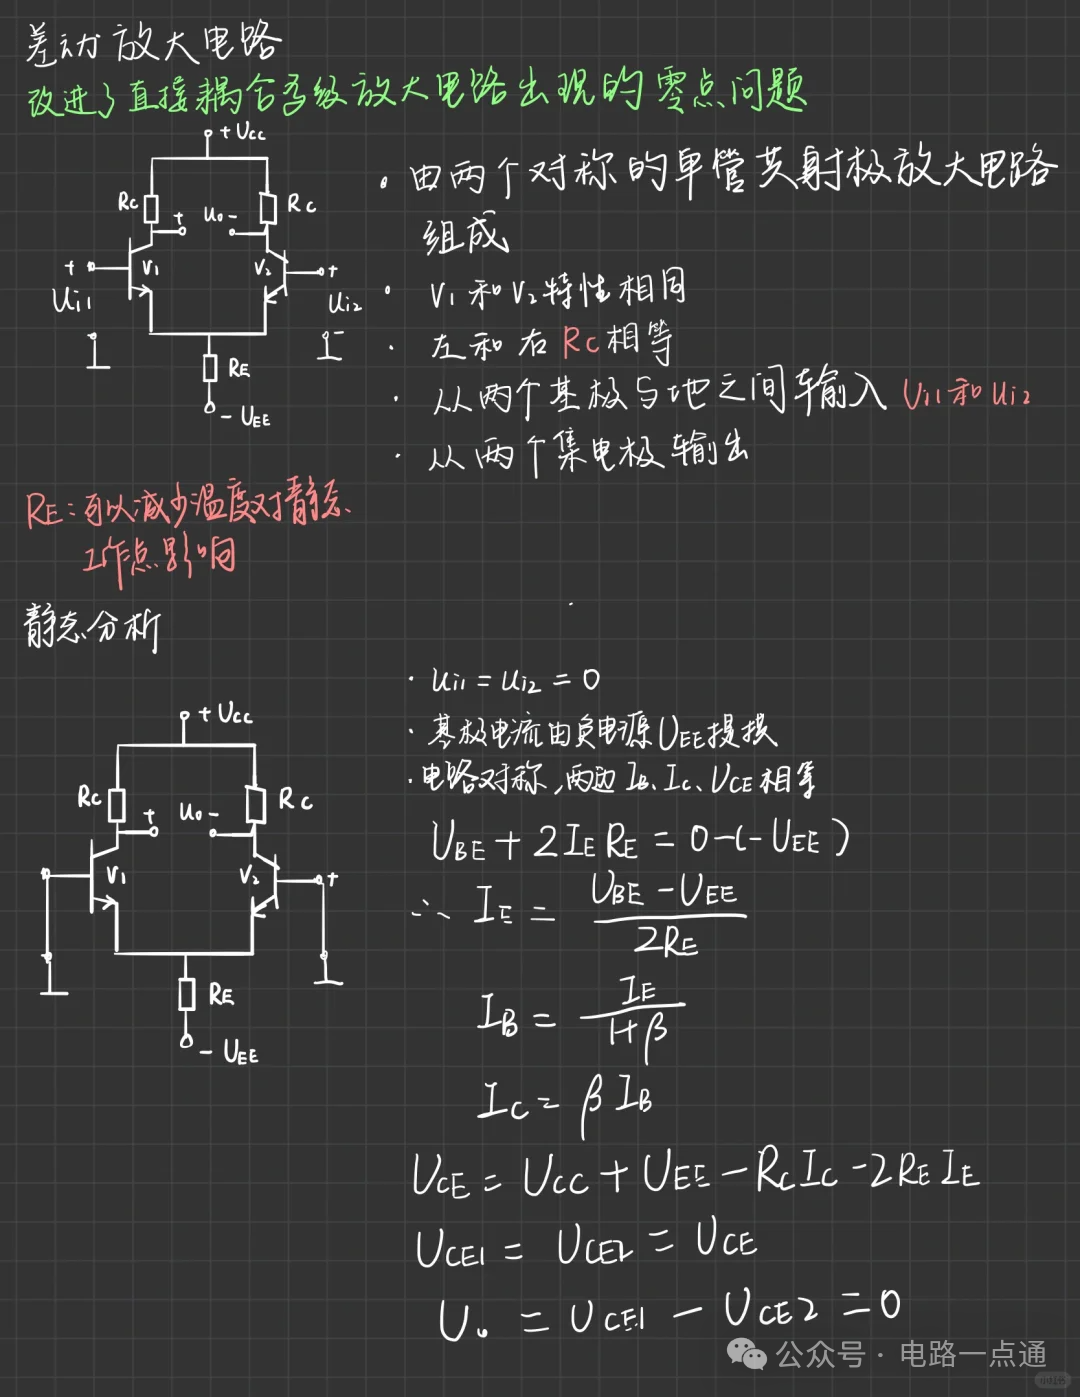 差动放大电路
改进了直接耦合多级放大电路出现的零点问题
+Ucc
Rc
+ Uo -
Rc
V1
V2
+
Ui1
+
Ui2
-
RE
-UEE
· 由两个对称的单管共射极放大电路
组成
· V1和V2特性相同
· 左和右Rc相等
· 从两个基极与地之间输入Ui1和Ui2
· 从两个集电极输出
RE:可以减少温度对静态
工作点影响
静态分析
+Ucc
Rc
+ Uo -
Rc
V1
V2
+
RE
-UEE
· Ui1 = Ui2 = 0
· 基极电流由负电源UEE提供
· 电路对称,两边IB、Ic、UCE相等
UBE + 2IERE = 0-(-UEE)
∴ IE = (UBE - UEE) / 2RE
IB = IE / 1+β
Ic = βIB
UCE = UCC + UEE - RcIc - 2REIE
UCE1 = UCE2 = UCE
Uo = UCE1 - UCE2 = 0
公众号 · 电路一点通
小红书